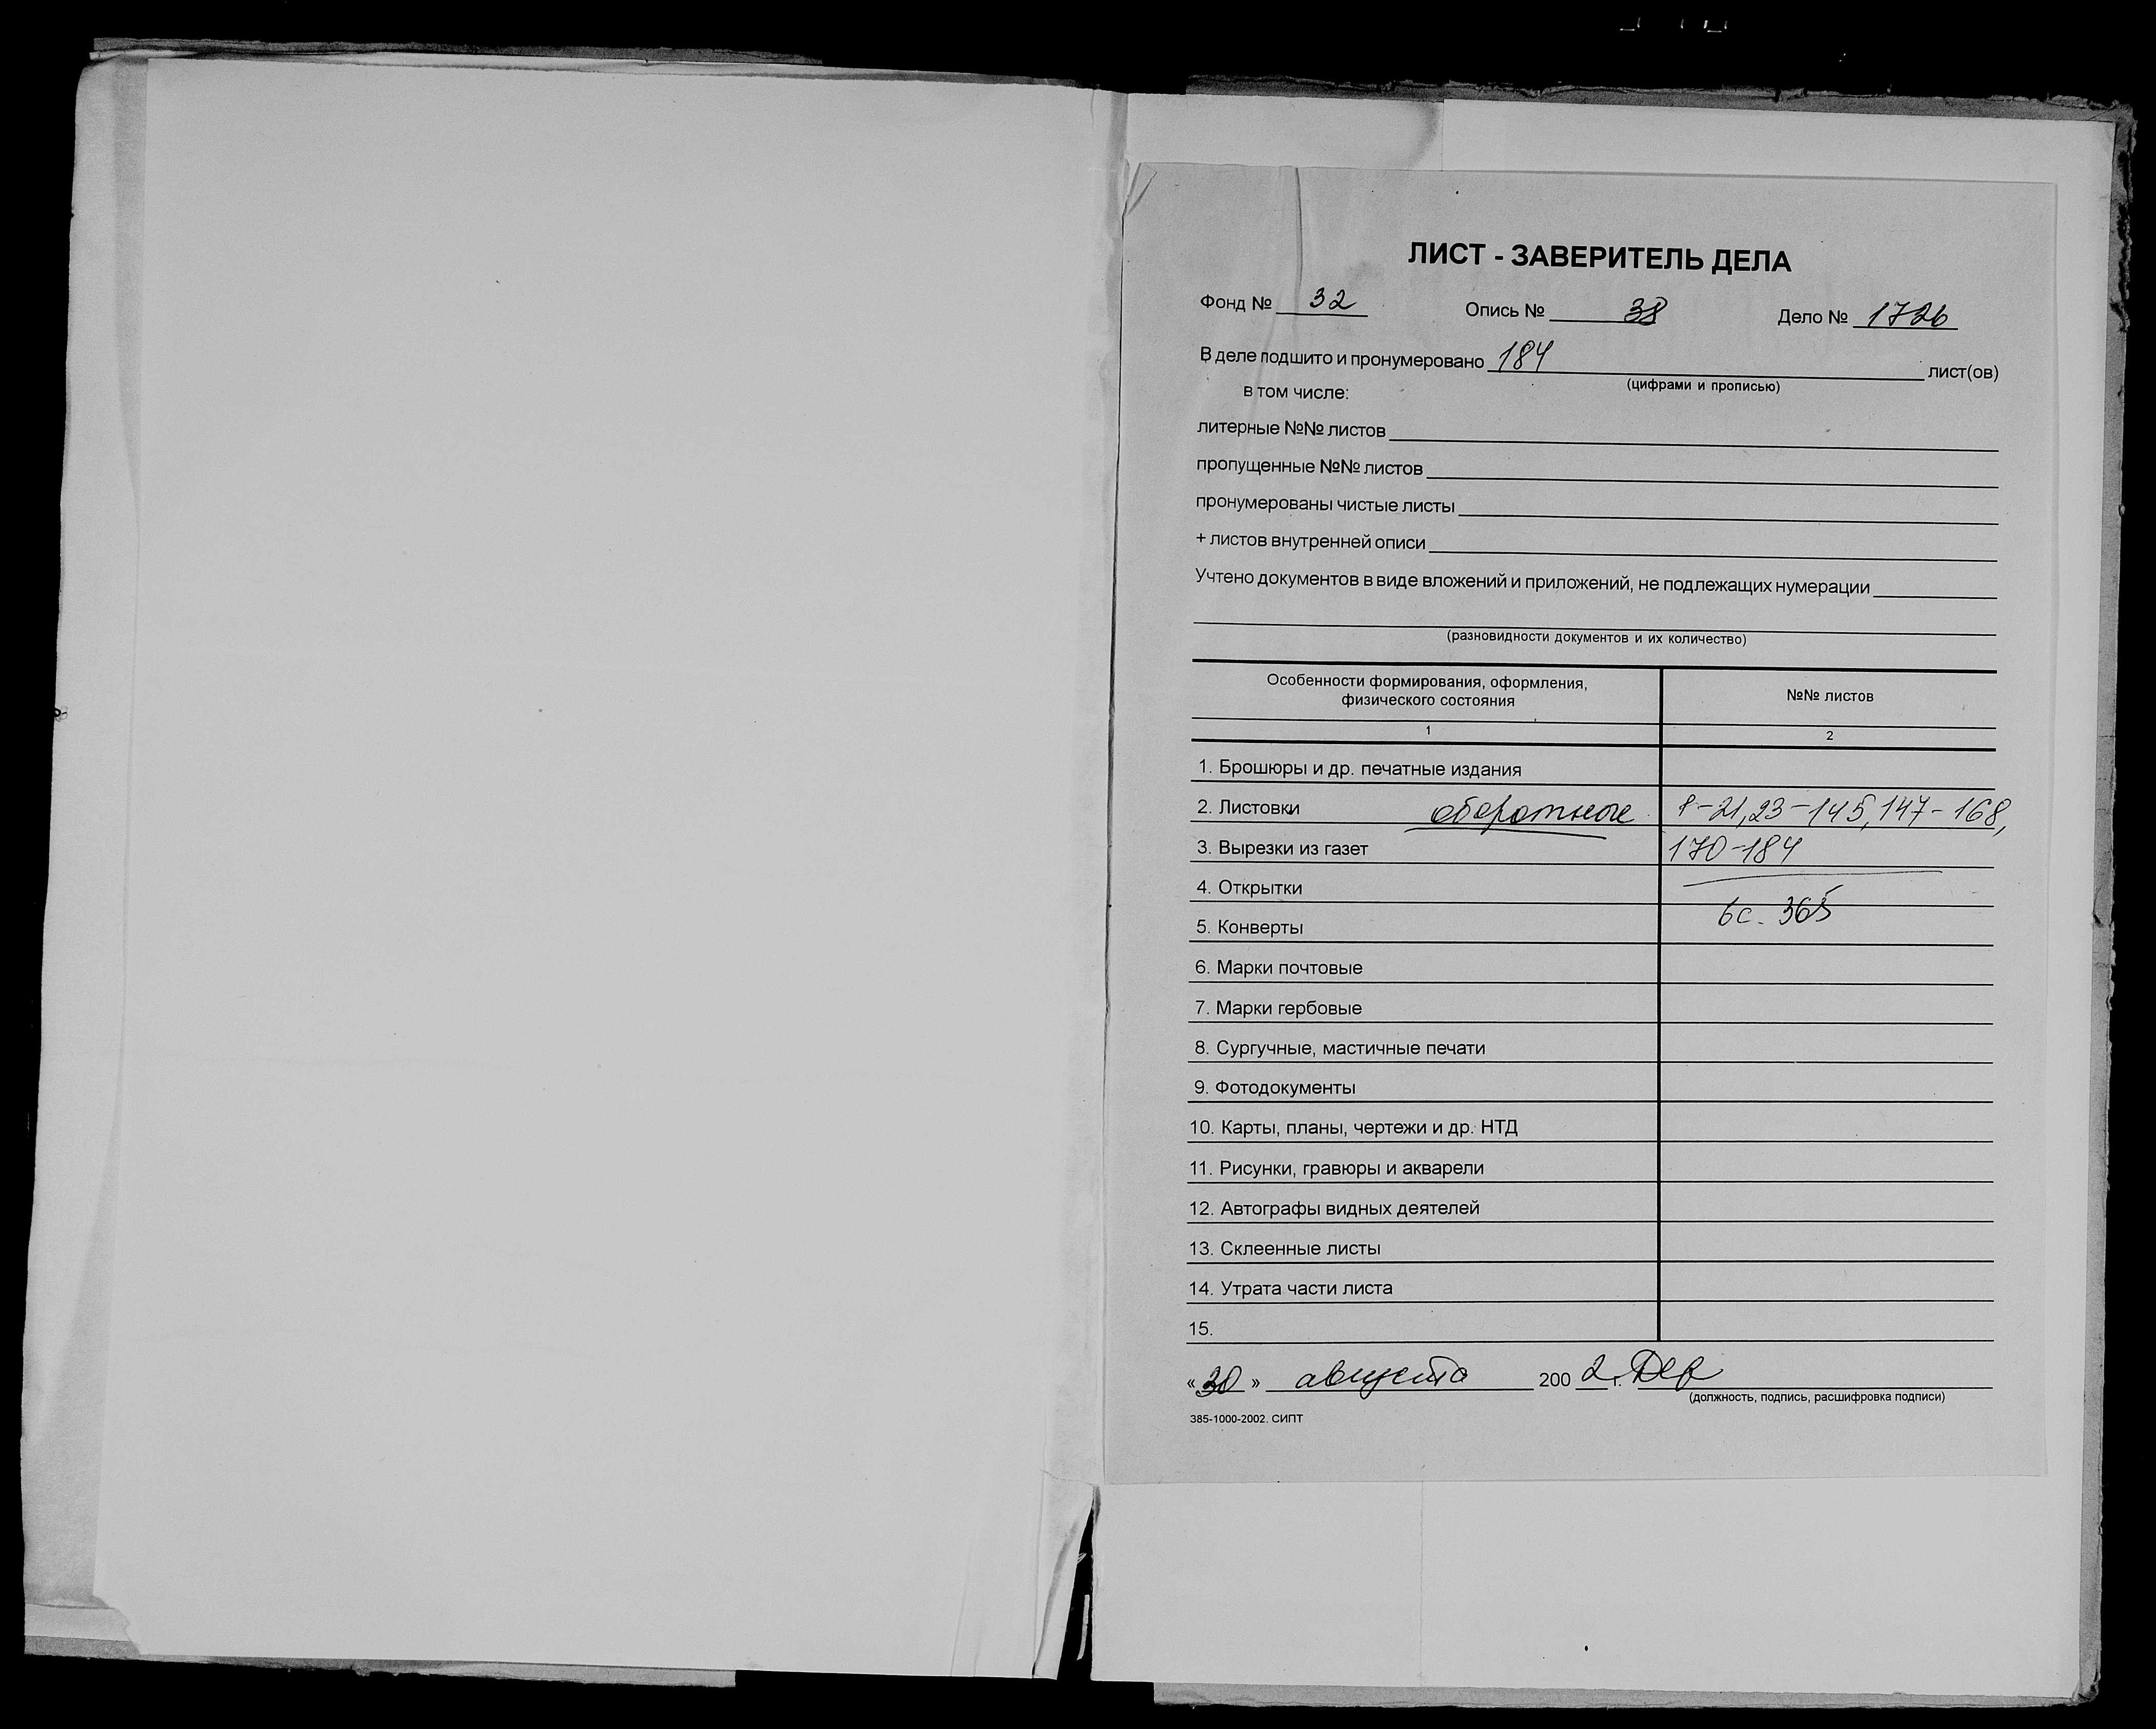 ЛИСТ - ЗАВЕРИТЕЛЬ ДЕЛА
Фонд № 32 Опись № 38 Дело № 1726
В деле подшито и пронумеровано 184 лист(ов)
(цифрами и прописью)
в том числе:
литерные №№ листов
пропущенные №№ листов
пронумерованы чистые листы
+ листов внутренней описи
Учтено документов в виде вложений и приложений, не подлежащих нумерации
(разновидности документов и их количество)
Особенности формирования, оформления, №№ листов
физического состояния
1 2
1. Брошюры и др. печатные издания
2. Листовки оборотные -21,23-145,147-168,
3. Вырезки из газет 170-184
4. Открытки
365
5. Конверты
6. Марки почтовые
7. Марки гербовые
8. Сургучные, мастичные печати
9. Фотодокументы
10. Карты, планы, чертежи и др. НТД
11. Рисунки, гравюры и акварели
12. Автографы видных деятелей
13. Склеенные листы
14. Утрата части листа
15.
«30» августа 2002 г.
(должность, подпись, расшифровка подписи)
385-1000-2002. СИПТ